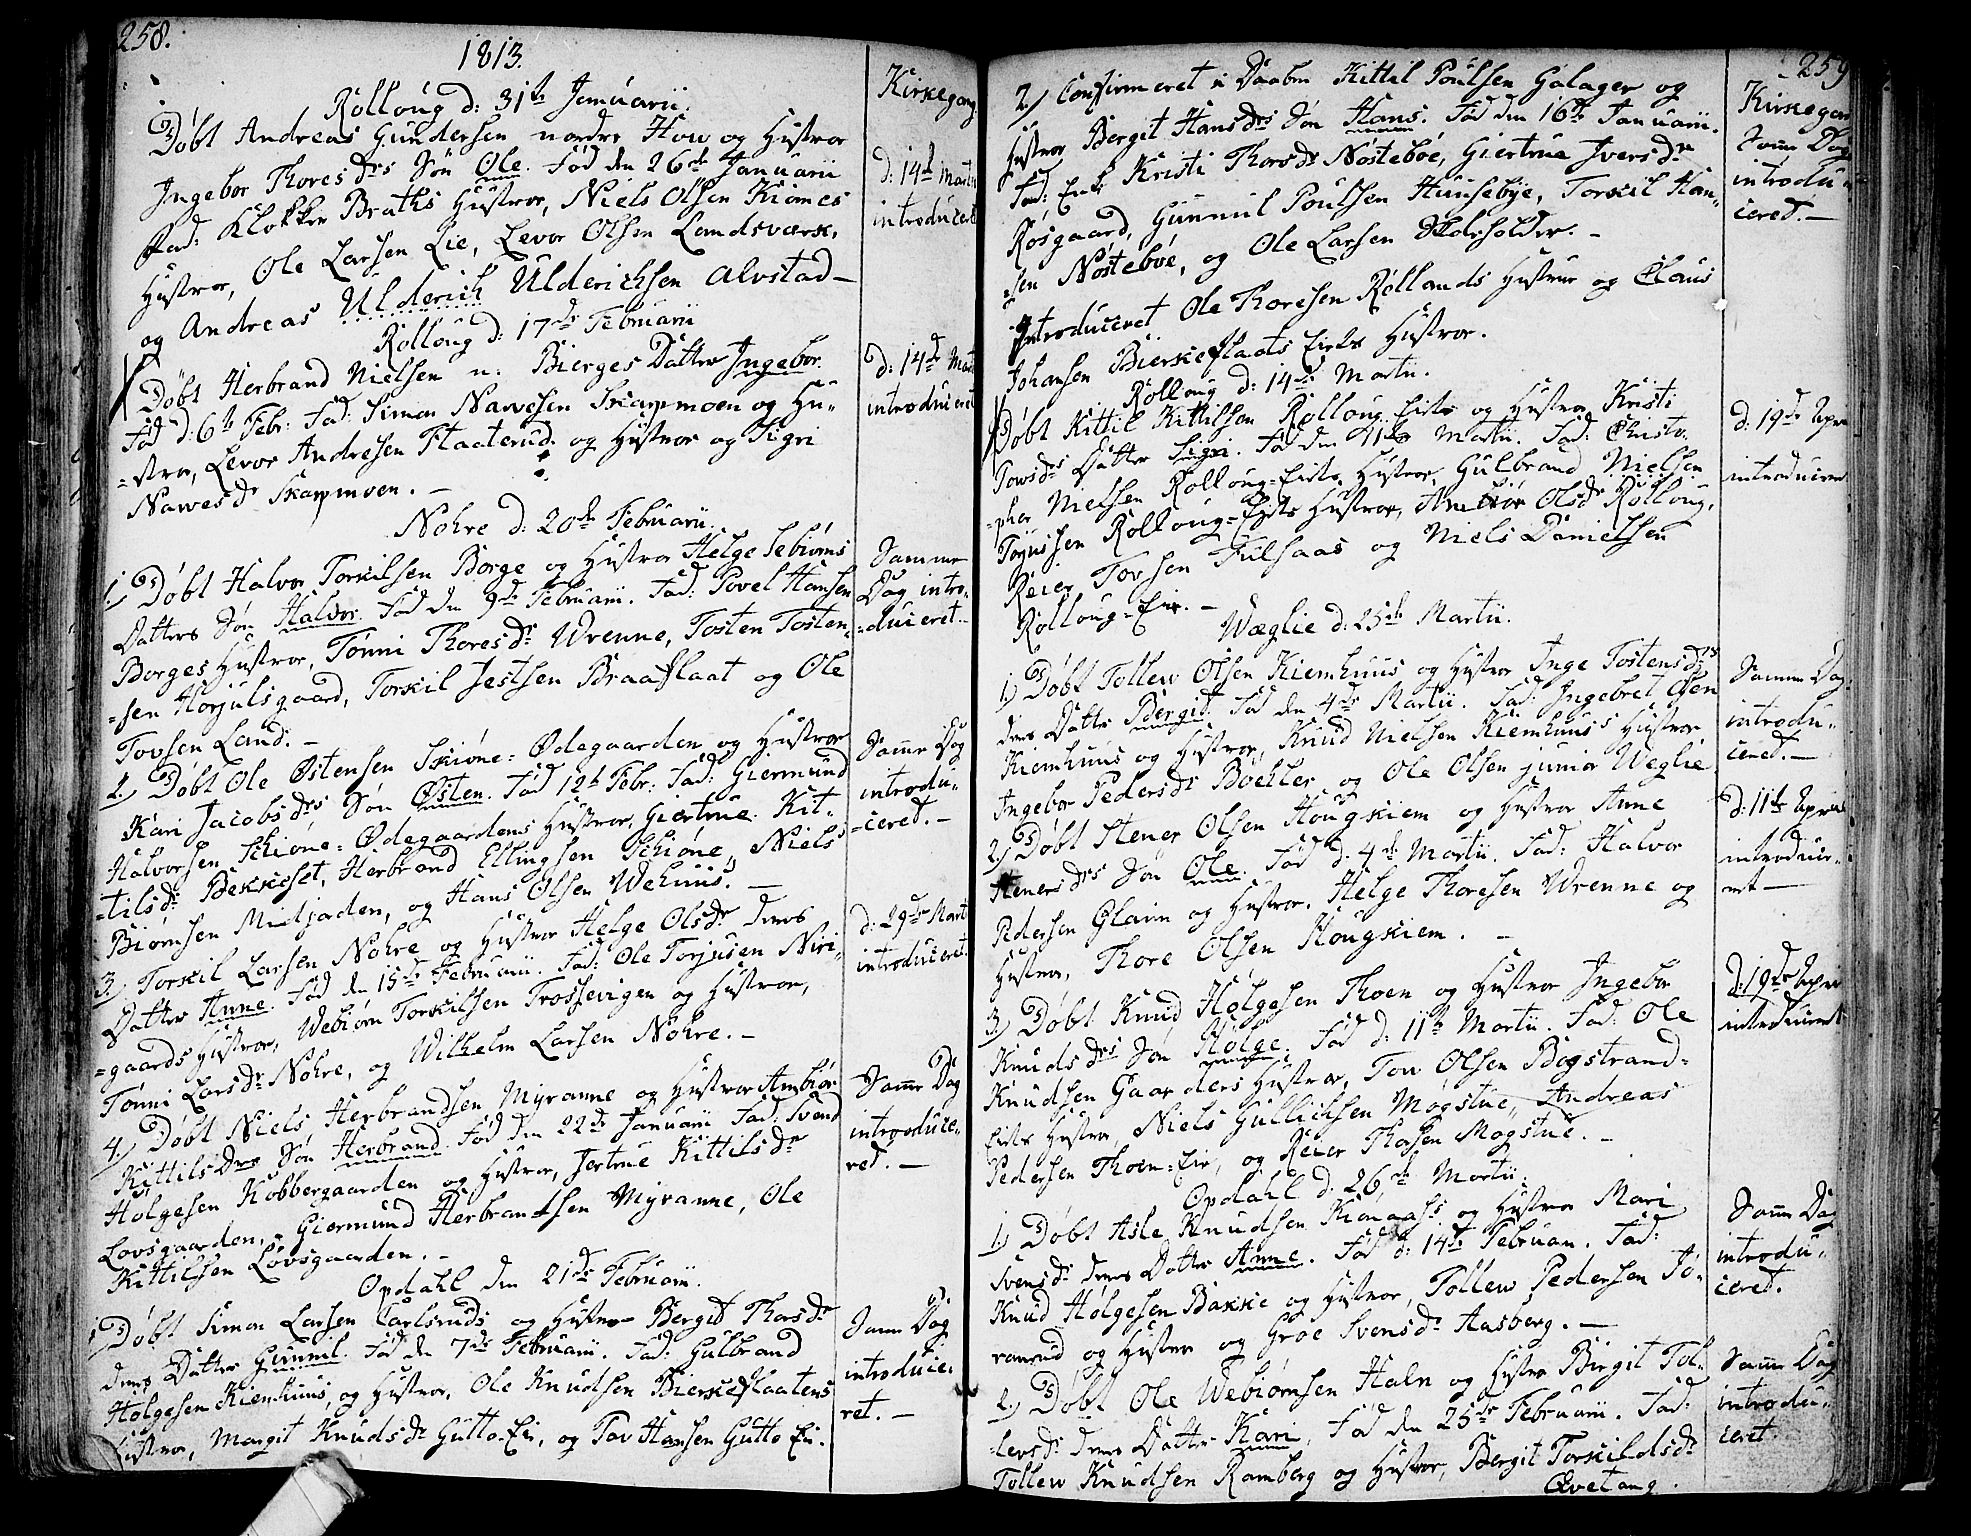 258.
1813.
Kirkegang
Rolloug d: 31te Januarii.
Døbt Andreas Gundersen nordre How og Hustroe
Ingebor Thoresdrs Søn Ole. Fød den 26de Januarii
Fad: Klokker Braths Hustroe, Niels Olsen Kiomes
Hustroe, Ole Larsen Lie, Levor Olsen Landsværk,
og Andreas Ulderich Ulderichsen Alvstad—
d: 14d Martii
introduceret
Rolloug d: 17de Februarii
Døbt Herbrand Nielsen n: Bierges Datter Ingebor.
Fød d: 6te Febr: Fad: Simen Nawesen Skarpmoen og Hu„
„stroe, Levor Andresen Flaaterud og Hustroe og Sigri
Nawesdr Skarpmoen. —
d: 14d Mart
introduceret
Nohre d: 20de Februarii.
1.) Døbt Halvor Torkilsen Borge og Hustroe Helge Sebiørns
Datters Søn Halvor. Fød den 9de Februarii. Fad: Povel Hansen
Borges Hustroe, Tønni Thoresdr Wrenne, Tosten Tosten„
„sen Horjulsgaard, Torkil Jestsen Braaflaat og Ole
Tovsen Land. —
Samme
Dag intro„
„duceret.
2.) Døbt Ole Østensen Skiøne=Ødegaarden og Hustroe
Kari Jacobsdrs Søn Østen. Fød 12t Febr: Fad: Giermund
Halvorsen Schiøne=Ødegaardens Hustroe, Giertrue Kit„
„tilsdr Bekkeset, Herbrand Ellingsen Schiøne, Niels
Biørnsen Midjorden, og Hans Olsen Wehuus. —
Samme Dag
introdu„
„ceret. —
3.) Torkil Larsen Nohre og Hustroe Helge Olsdr deres
Datter Anne. Fød den 15de Februarii. Fad: Ole Torjusen Niri„
„gaards Hustroe, Webiørn Torkilsen Trossevigen og Hustroe,
Tønni Larsdr Nohre, og Wilhelm Larsen Nohre. —
d: 29de Mart
introduceret.
4.) Døbt Niels Herbrandsen Myranne og Hustroe Ambiør
Kittilsdrs Søn Herbrand. Fød den 22de Januarii Fad: Svend
Holgesen Kobbergaarden og Hustroe, Jertrue Kittilsdr
Lovsgaarden, Giermund Herbrandsen Myranne, Ole
Kittilsen Lovsgaarden. —
Samme Dag
introduce„
red. —
Opdahl den 21de Februarii.
Døbt Simen Larsen Carlsruds og Hustroe Bergit Thorsdr
deres Datter Gunnil. Fød den 7de Februarii. Fad: Gulbrand
Holgesen Kiemhuus, og Hustroe, Ole Knudsen Bierkeflaatens
Hustroe, Margit Knudsdr Gutto=Eie, og Tov Hansen Gutto Eie.
Samme Dag
introduce„
ret. —
259
Kirkegan
2.) Confirmeret i Daaben Kittil Poulsen Golager og
Hustroe Bergit Hansdrs Søn Hans. Fød den 16de Januarii.
Fad: Kristi Thorsdr Nøstebøe, Giertrue Iversdr
Rosgaard, Gunnul Poulsen Huusebye, Torkil Han„
„sen Nøstebøe, og Ole Larsen Skoleholder. —
Samme Dag
introdu„
ceret. —
Introduceret Ole Thoresen Røllands Hustroe og Claus
Johansen Bierkeflaats Eiets Hustroe.
Rolloug d: 14de Martii.
Døbt Kittil Kittilsen Rolloug Eiet og Hustroe Kristi
Towsdrs Datter Sigri. Fød den 11te Martii. Fad: Christo„
„pher Nielsen Rolloug=Eiets Hustroe, Gulbrand Nielsen
Torjussen Rolloug=Eiets Hustroe, Ambiør Olsdr Rolloug,
Reier Tovsen Fulsaas og Niels Danielsen
Rolloug=Eie. —
d: 19de Apri
introduceret
Wæglie d: 25de Martii.
1.) Døbt Tollew Olsen Kiemhuus og Hustroe Inge Tostensdr
deres Datter Bergit. Fød den 4de Martii. Fad: Ingebret Olsen
Kiemhuus og Hustroe, Knud Nielsen Kiemhuus Hustroe
Ingebor Pedersdr Bøehler og Ole Olsen junior Weglie
Samme Dag
introdu„
ceret. —
2.) Døbt Stener Olsen Hougkiem og Hustroe Anne
Stenersdrs Søn Ole. Fød d. 4de Martii. Fad: Halvor
Pedersen Glaim og Hustroe, Helge Thoresen Wrenne og
Hustroe, Thore Olsen Hougkiem. —
d: 11te Apri
introducer„
ret —
3.) Døbt Knud Holgesen Thoen og Hustroe Ingebor
Knudsdrs Søn Holge. Fød d: 11te Martii. Fad: Ole
Knudsen Gaarders Hustroe, Tov Olsen Bogstrand=
Eiets Hustroe, Niels Gullichsen Mogstue, Andreas
Pedersen Thoen=Eie, og Reier Thorsen Mogstue. —
d: 19de Apri
introduceret
Opdahl d. 26de Martii.
1.) Døbt Asle Knudsen Kionaas og Hustroe Mari
Svensdr deres Datter Anne. Fød d: 14de Februarii. Fad:
Knud Holgesen Bakke og Hustroe, Tollew Pedersen To„
ronrud og Hustroe og Groe Svensdr Aasberg. —
Samme Dag
introdu„
ceret.
2.) Døbt Ole Webiørnsen Haln og Hustroe Birgit Tol„
„levsdr deres Datter Kari. Fød den 25de Februarii. Fad:
Tollew Knudsen Ramberg og Hustroe, Bergit Torkildsdr
Ævetang.
Samme Dag
introdu„
ceret